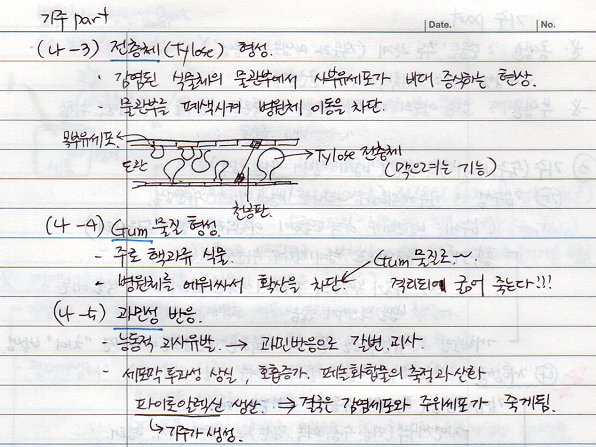 기주 part
Date.
No.
(나-3) 전충체(Tylose) 형성.
· 감염된 식물체의 물관부에서 사부유세포가 비대 증식하는 현상.
- 물관부를 폐색시켜 병원체 이동을 차단.
목부유세포.
도관
Tylose 전충체
(막으려는 기능)
천공판.
(나-4) Gum 물질 형성.
- 주로 핵과류 식물.
Gum 물질로~
- 병원체를 에워싸서 확산을 차단.
격리되어 굶어 죽는다!!!
(나-5) 과민성 반응.
능동적 괴사유발. → 과민반응으로 갈변.괴사.
- 세포막 투과성 상실, 호흡증가, 페놀화합물의 축적과 산화
파이토알렉신 생산. ⇒ 결국은 감염세포와 주위세포가 죽게됨.
기주가 생성.